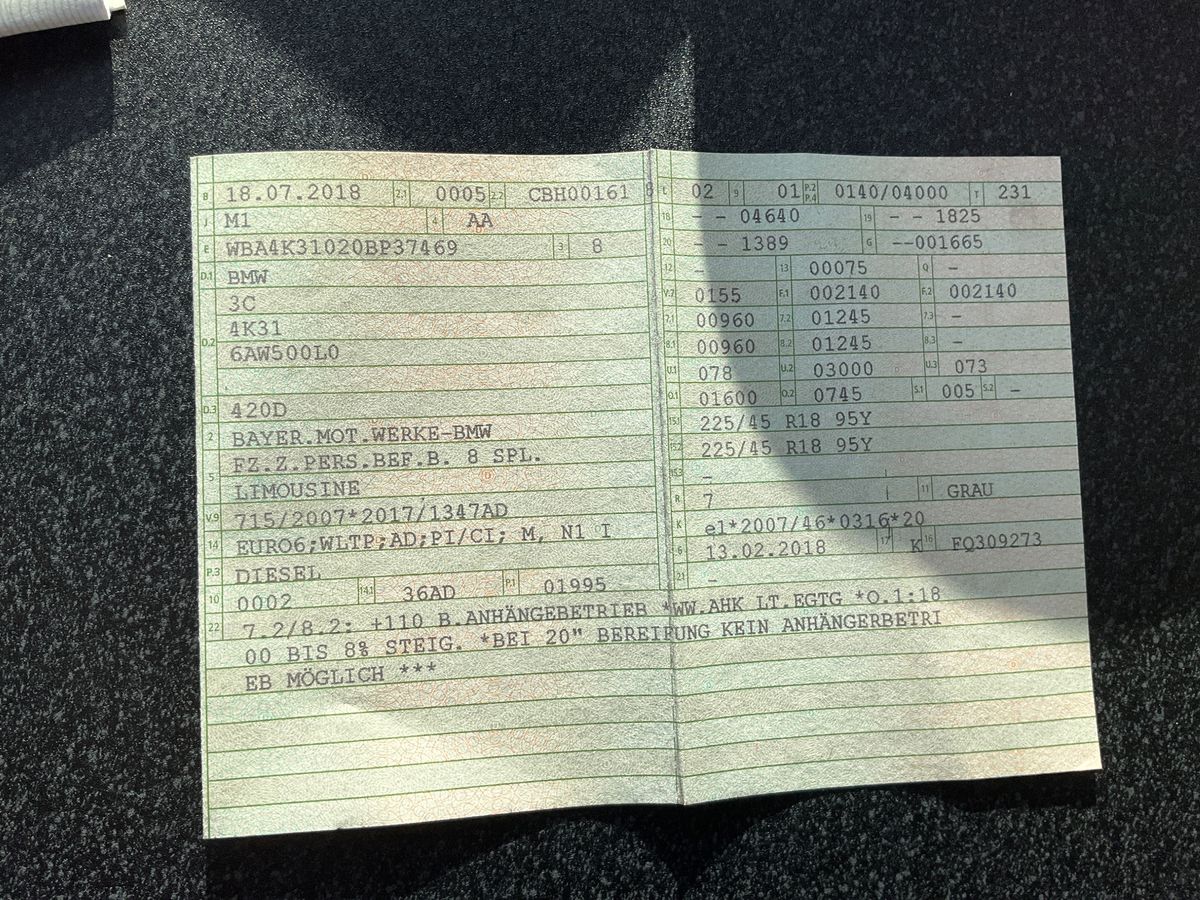 B 18.07.2018 2.1 0005 2.2 CBH00161 8
J M1 4 AA
E WBA4K31020BP37469 3 8
D.1 BMW
3C
4K31
D.2 6AW500L0
D.3 420D
2 BAYER.MOT.WERKE-BMW
FZ.Z.PERS.BEF.B. 8 SPL.
5 LIMOUSINE
V.9 715/2007*2017/1347AD
14 EURO6;WLTP;AD;PI/CI; M, N1 I
P.3 DIESEL
10 0002 14.1 36AD P.1 01995
L 02 9 01 P.2 P.4 0140/04000 T 231
18 - - 04640 19 - - 1825
20 - - 1389 G --001665
12 - 13 00075 Q -
V.7 0155 F.1 002140 F.2 002140
7.1 00960 7.2 01245 7.3 -
8.1 00960 8.2 01245 8.3 -
U.1 078 U.2 03000 U.3 073
O.1 01600 O.2 0745 S.1 005 S.2 -
15.1 225/45 R18 95Y
15.2 225/45 R18 95Y
15.3 -
R 7 11 GRAU
K e1*2007/46*0316*20
6 13.02.2018 17 K 16 FQ309273
21 -
22 7.2/8.2: +110 B.ANHÄNGEBETRIEB *WW.AHK LT.EGTG *O.1:18
00 BIS 8% STEIG. *BEI 20" BEREIFUNG KEIN ANHÄNGERBETRI
EB MÖGLICH ***